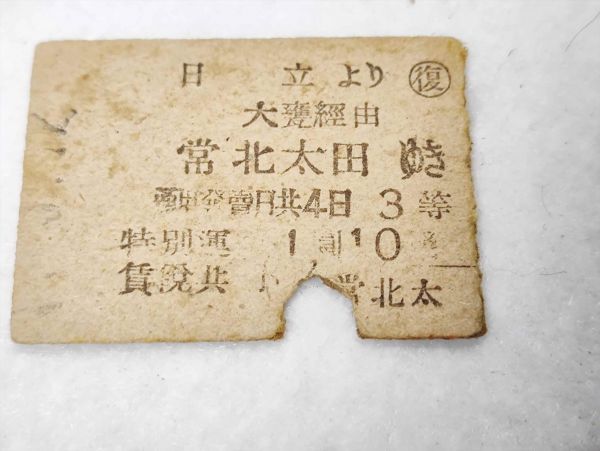 日立より 復
大甕經由
常北太田ゆき
通用發賣日共4日 3等
特別運 1圓10
賃稅共 常北太